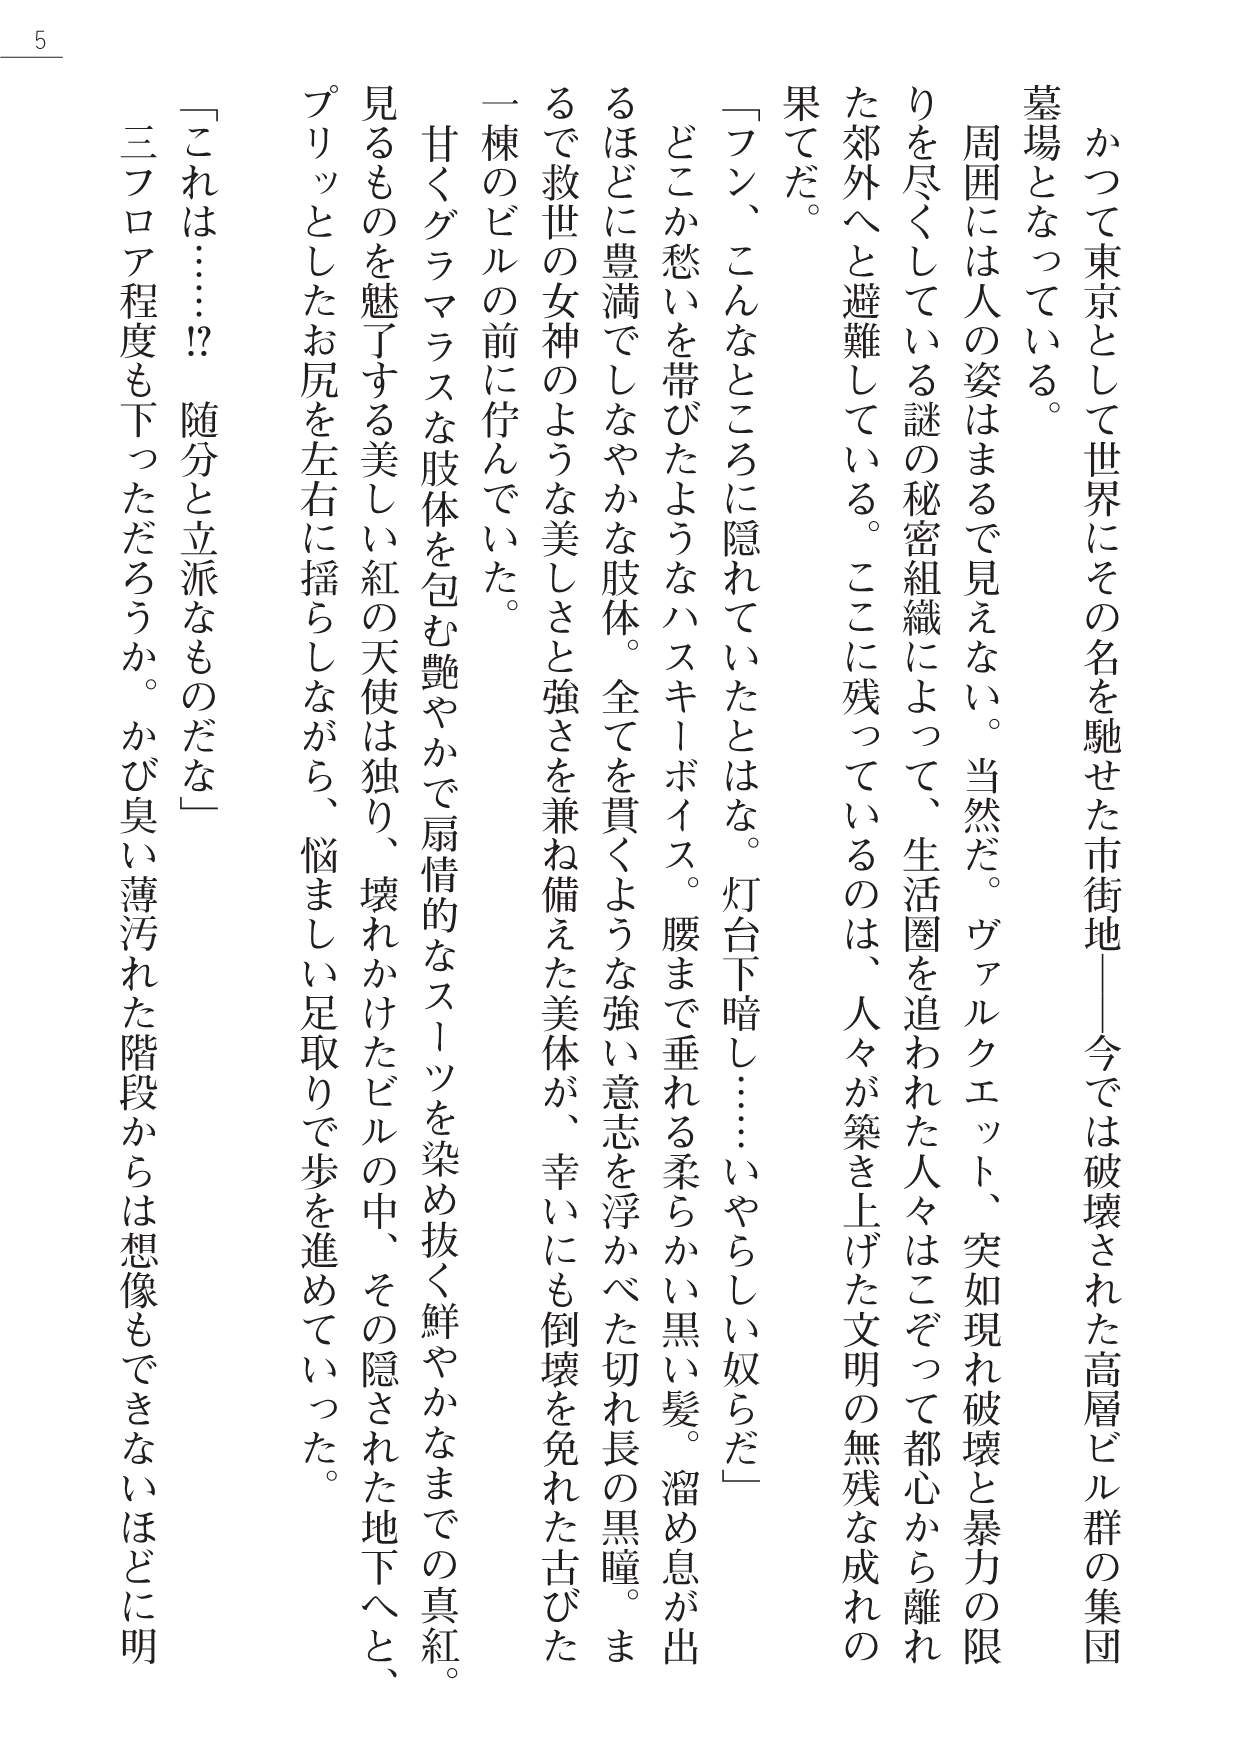 5
　かつて東京として世界にその名を馳せた市街地――今では破壊された高層ビル群の集団
墓場となっている。
　周囲には人の姿はまるで見えない。当然だ。ヴァルクエット、突如現れ破壊と暴力の限
りを尽くしている謎の秘密組織によって、生活圏を追われた人々はこぞって都心から離れ
た郊外へと避難している。ここに残っているのは、人々が築き上げた文明の無残な成れの
果てだ。
「フン、こんなところに隠れていたとはな。灯台下暗し……いやらしい奴らだ」
　どこか愁いを帯びたようなハスキーボイス。腰まで垂れる柔らかい黒い髪。溜め息が出
るほどに豊満でしなやかな肢体。全てを貫くような強い意志を浮かべた切れ長の黒瞳。ま
るで救世の女神のような美しさと強さを兼ね備えた美体が、幸いにも倒壊を免れた古びた
一棟のビルの前に佇んでいた。
　甘くグラマラスな肢体を包む艶やかで扇情的なスーツを染め抜く鮮やかなまでの真紅。
見るものを魅了する美しい紅の天使は独り、壊れかけたビルの中、その隠された地下へと、
プリッとしたお尻を左右に揺らしながら、悩ましい足取りで歩を進めていった。
「これは……!?　随分と立派なものだな」
　三フロア程度も下っただろうか。かび臭い薄汚れた階段からは想像もできないほどに明